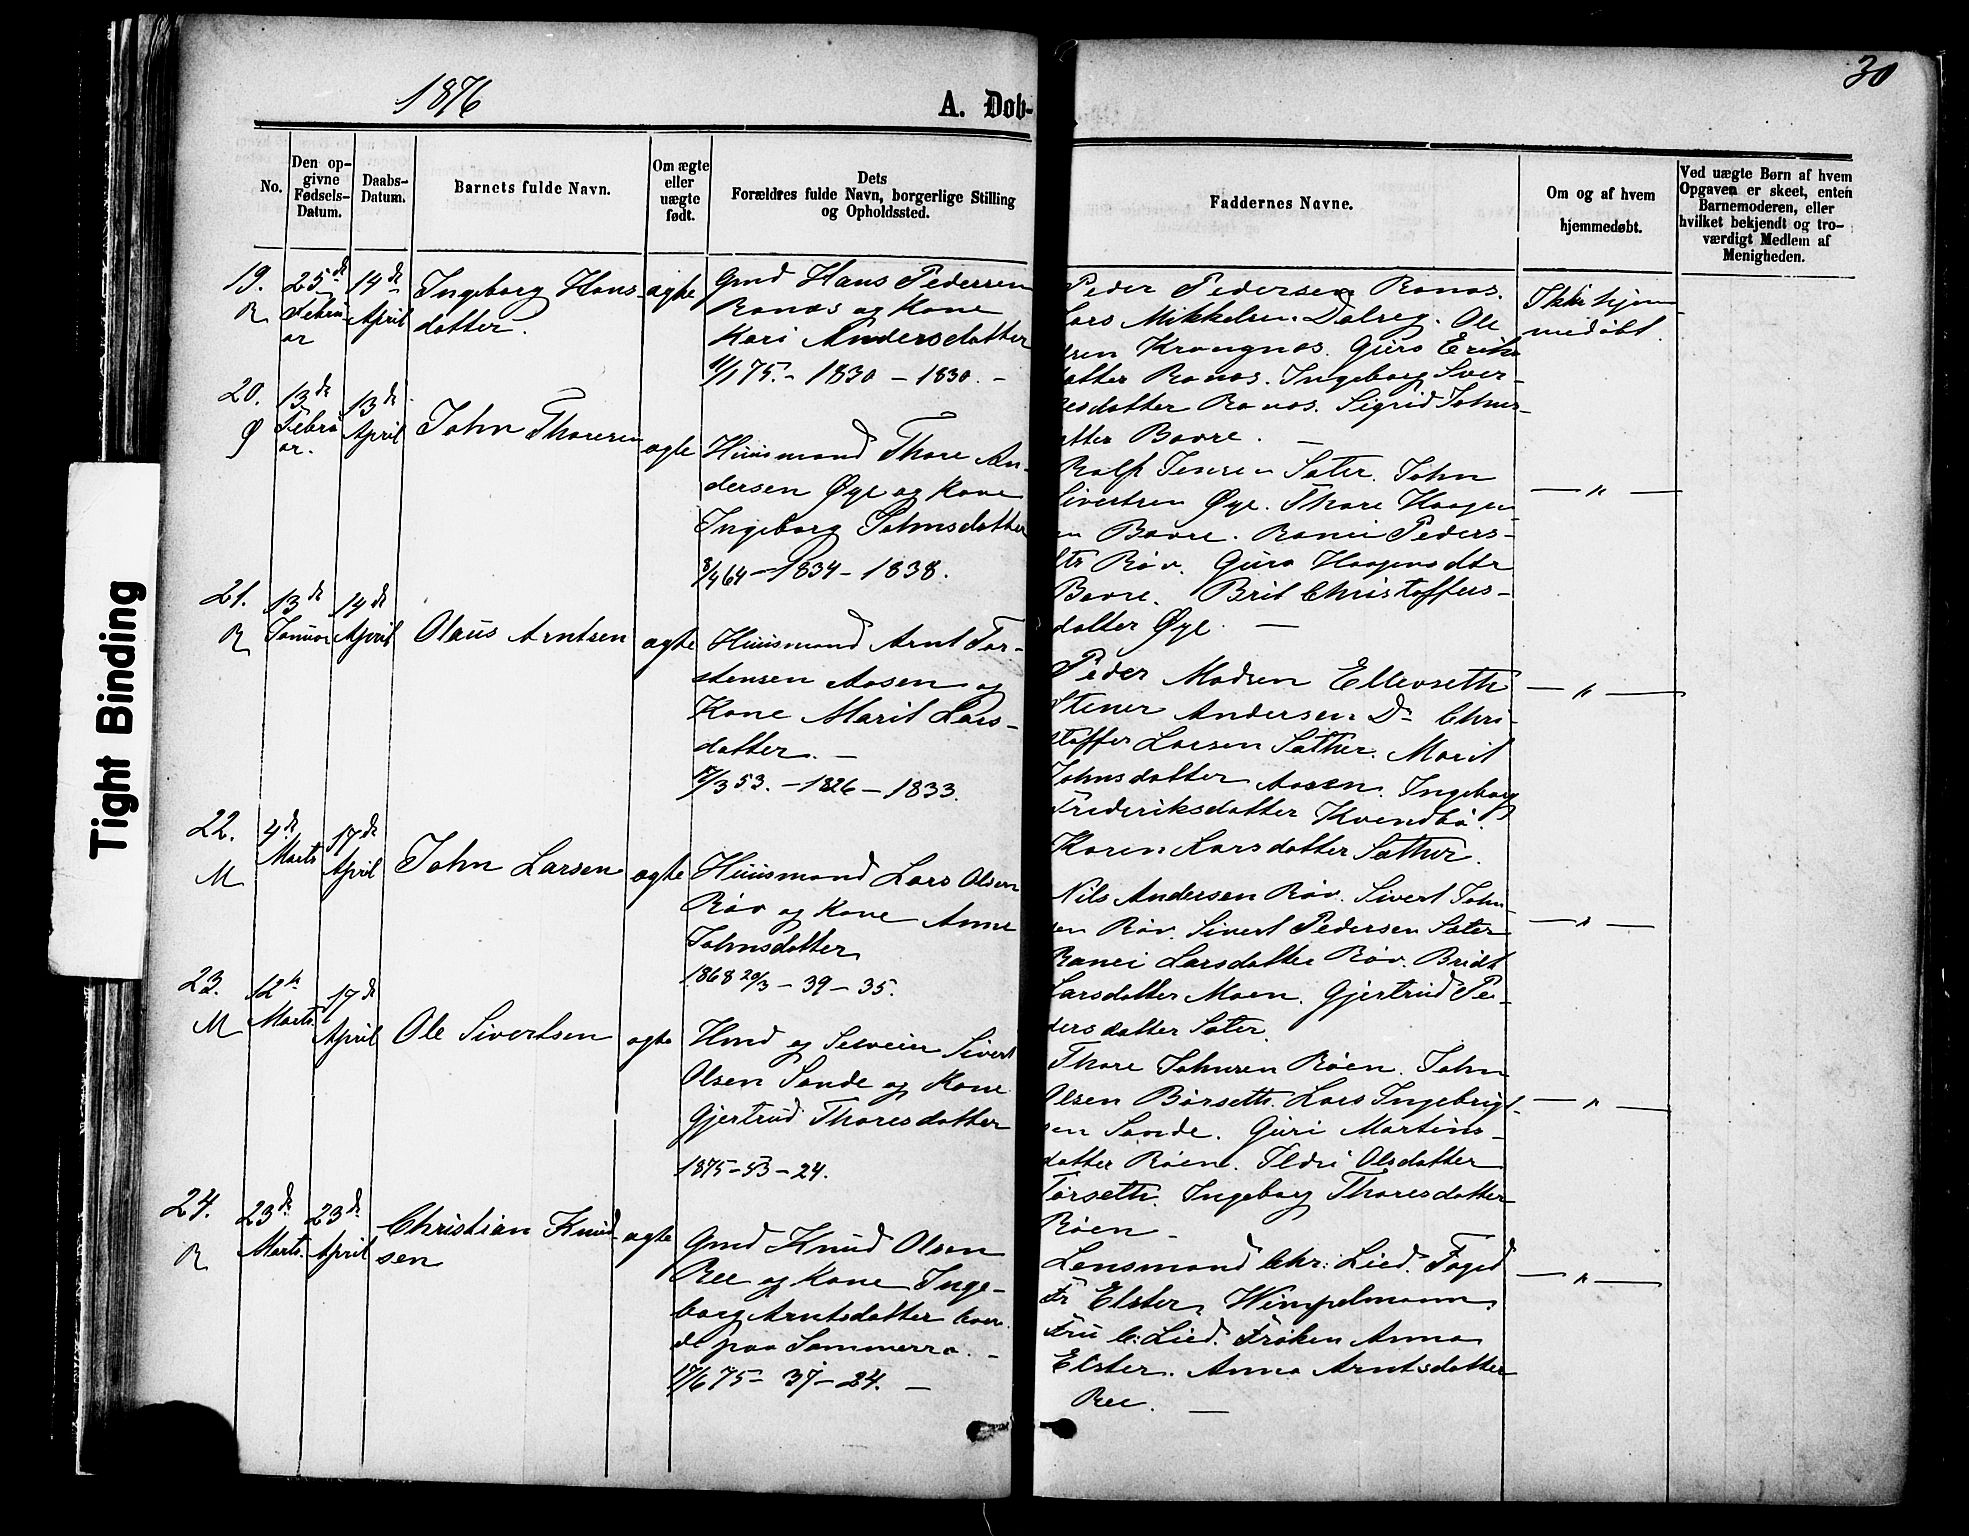 1876
A. Døb-
30
Tight Binding
No.
Den op-
givne
Fødsels-
Datum.
Daabs-
Datum.
Barnets fulde Navn.
Om ægte
eller
uægte
født.
Dets
Forældres fulde Navn, borgerlige Stilling
og Opholdssted.
Faddernes Navne.
Om og af hvem
hjemmedøbt.
Ved uægte Børn af hvem
Opgaven er skeet, enten
Barnemoderen, eller
hvilket bekjendt og tro-
værdigt Medlem af
Menigheden.
19.
R
25de
Febru
ar
14de
April
Ingeborg Hans-
datter.
ægte
Gmd Hans Pedersen
Ranæs og Kone
Kari Andersdatter
1/1 75. - 1830 - 1830. -
Peder Pedersen Ranæs.
Lars Mikkelsen Dalseg. Ole
Krangnæs. Guro Eriks
datter Ranæs. Ingeborg Siver-
datter Ranæs. Sigrid Johns-
atter Bævre. -
Ikke hjem
medøbt.
20.
Ø
13de
Febru
ar.
13de
April
John Thoresen
ægte
Huusmand Thore An-
dersen Øye og Kone
Ingeborg Johnsdatter
8/4 64 - 1834 - 1838.
Rolf Jensen Sæter. John
Sivertsen Øye. Thore Haagen-
en Bævre. Ranei Peders-
dtr Røv. Guro Haagensdtr
Bævre. Brit Christoffers-
datter Øye. -
- " -
21.
R
13de
Januar
14de
April
Olaus Arntsen
ægte
Huusmand Arnt Tor-
stensen Aasen og
Kone Marit Lars-
datter. -
/3 53. - 1826 - 1833.
Peder Madsen Ellevseth
Stener Andersen Do Chri-
stoffer Larsen Sæther. Marit
Johnsdatter Aasen. Ingeborg
Frederiksdatter Kvendbø.
Karen Larsdatter Sæther.
- " -
22.
M
4de
Marts
17de
April
John Larsen
ægte
Huusmand Lars Olsen
Røv og Kone Anne
Johnsdatter
1868 20/3 - 39 - 35.
Nils Andersen Røv. Sivert John-
sen Røv. Sivert Pedersen Sæter
Ranei Larsdatter Røv. Bridt
Larsdatter Moen. Gjertrud Pe-
dersdatter Sæter.
- " -
23.
M
12te
Marts.
17de
April
Ole Sivertsen
ægte
Hmd og Sivert
Olsen Sande og Kone
Gjertrud Thoresdatter
1875 - 53 - 24.
Thore Johnsen Røen. John
Olsen Børseth. Lars Ingebrigt-
sen Sande. Guri Martins-
datter Røen. Ildri Olsdatter
Tørseth. Ingeborg Thoresdatter
Røen -
- " -
24.
R
23de
Marts.
23de
April
Christian Knud-
sen
ægte
Gmd Knud Olsen
Ree og Kone Inge-
borg Arntsdatter boen
de paa Sommerro. -
17/6 75 - 37 - 24. -
Lensmand Chr: Lied. Foged
Fr Elster. Wimpelmann.
Fru C: Lied. Frøken Anna
Elster. Anna Arntsdatter
Ree. -
- " -